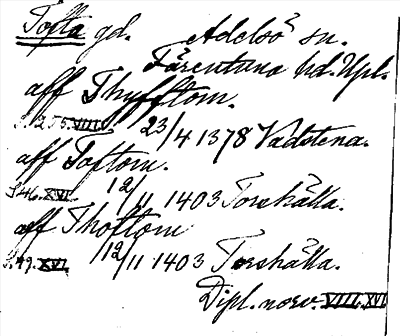 Tofta gd. Adelsö sn.
Färentuna hd. Upl.
aff Thyfftom.
S. 255. VIII. 23/4 1378 Vadstena.
aff Toftom.
S. 46. XVI. 12/11 1403 Torshälla.
aff Thottom
S. 49. XVI. 12/11 1403 Torshälla.
Dipl. norv. VIII. XVI.